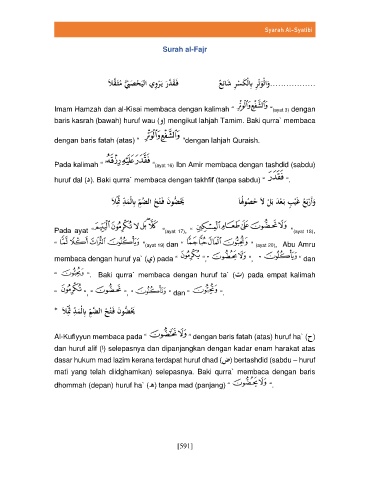 Syarah Al-Syatibi
Surah al-Fajr
.................وَالْوَتْرِ بِالْكَسْرِ شَائِعٌ فَقَدَّرَ يَرْوِي اليَحْصَبِيُّ مُثَقَّلَا
Imam Hamzah dan al-Kisai membaca dengan kalimah " وَٱلشَّفۡعِ وَٱلۡوَتۡرِ "(ayat 3) dengan
baris kasrah (bawah) huruf wau (و) mengikut lahjah Tamim. Baki qurra` membaca
dengan baris fatah (atas) " وَٱلشَّفۡعِ وَٱلۡوَتۡرِ "dengan lahjah Quraish.
Pada kalimah " فَقَدَرَ عَلَيۡهِ رِزۡقَهُۥ "(ayat 16) Ibn Amir membaca dengan tashdid (sabdu)
huruf dal (د). Baki qurra` membaca dengan takhfif (tanpa sabdu) " فَقَدَرَ ".
وَأَرْبَعُ غَيْبٍ بَعْدَ بَلْ لَا حُصُولُهَا يَحُضُّونَ فَتْحُ الضَّمِّ بِالْمَدِّ ثُمِّلَا
Pada ayat " كَلَّاۖ بَل لَّا تُكۡرِمُونَ ٱلۡيَتِيمَ "(ayat 17), " وَلَا تَحَٰٓضُّونَ عَلَىٰ طَعَامِ ٱلۡمِسۡكِينِ "(ayat 18),
" وَتَأۡكُلُونَ ٱلتُّرَاثَ أَكۡلٗا لَّمّٗا "(ayat 19) dan " وَتُحِبُّونَ ٱلۡمَالَ حُبّٗا جَمّٗا " (ayat 20), Abu Amru
membaca dengan huruf ya` (ي) pada " يُكۡرِمُونَ "," وَلَا يَحُضُّونَ ", " وَيَأۡكُلُونَ " dan
" وَيُحِبُّونَ ". Baki qurra` membaca dengan huruf ta` (ت) pada empat kalimah
" تُكۡرِمُونَ ", " تَحُضُّونَ ", " وَتَأۡكُلُونَ " dan " وَتُحِبُّونَ ".
* يَحُضُّونَ فَتْحُ الضَّمِّ بِالْمَدِّ ثُمِّلَا
Al-Kufiyyun membaca pada " وَلَا تَحَٰٓضُّونَ " dengan baris fatah (atas) huruf ha` (ح)
dan huruf alif (ا) selepasnya dan dipanjangkan dengan kadar enam harakat atas
dasar hukum mad lazim kerana terdapat huruf dhad (ض) bertashdid (sabdu – huruf
mati yang telah diidghamkan) selepasnya. Baki qurra` membaca dengan baris
dhommah (depan) huruf ha` (ه) tanpa mad (panjang) " وَلَا تَحُضُّونَ ".
[591]